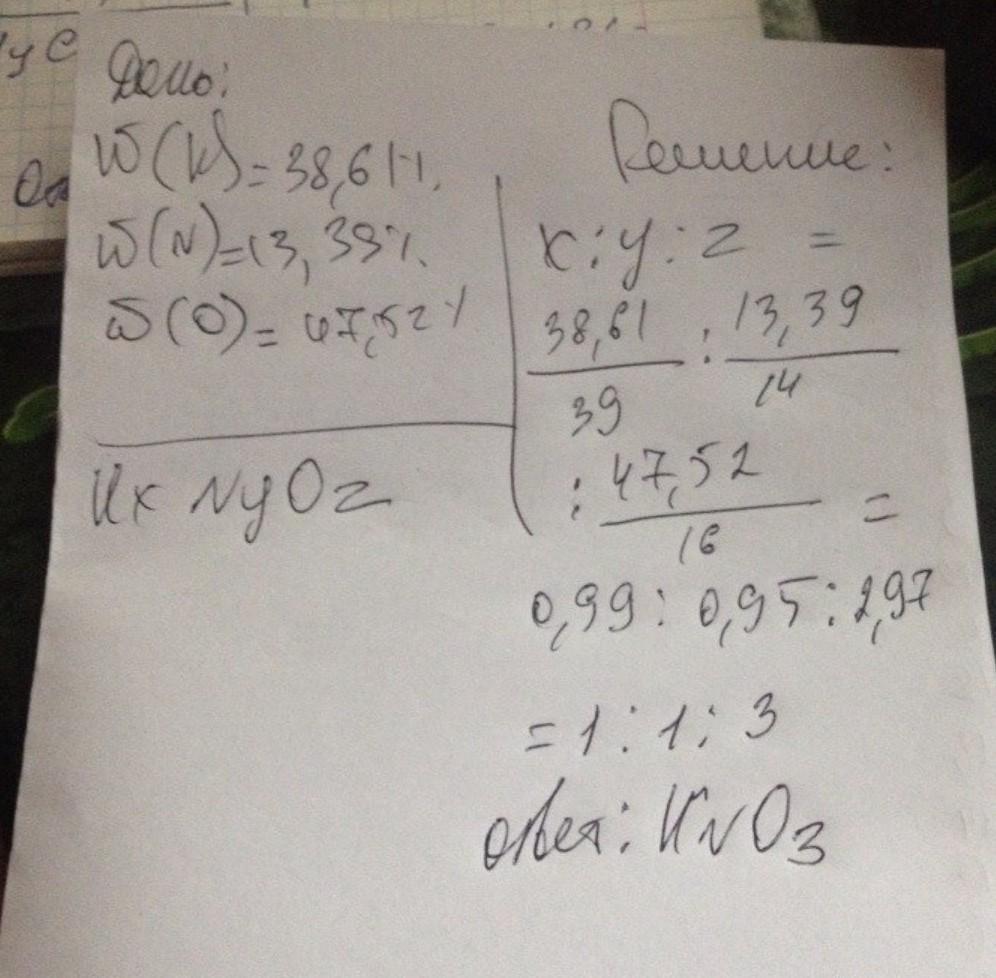 Дано:
W(K)=38,61%
W(N)=13,39%
W(O)=47,52%
KxNyOz
Решение:
x:y:z =
38,61 : 13,39
39 14
: 47,52 =
16
0,99 : 0,95 : 2,97
=1:1:3
ответ: KNO3